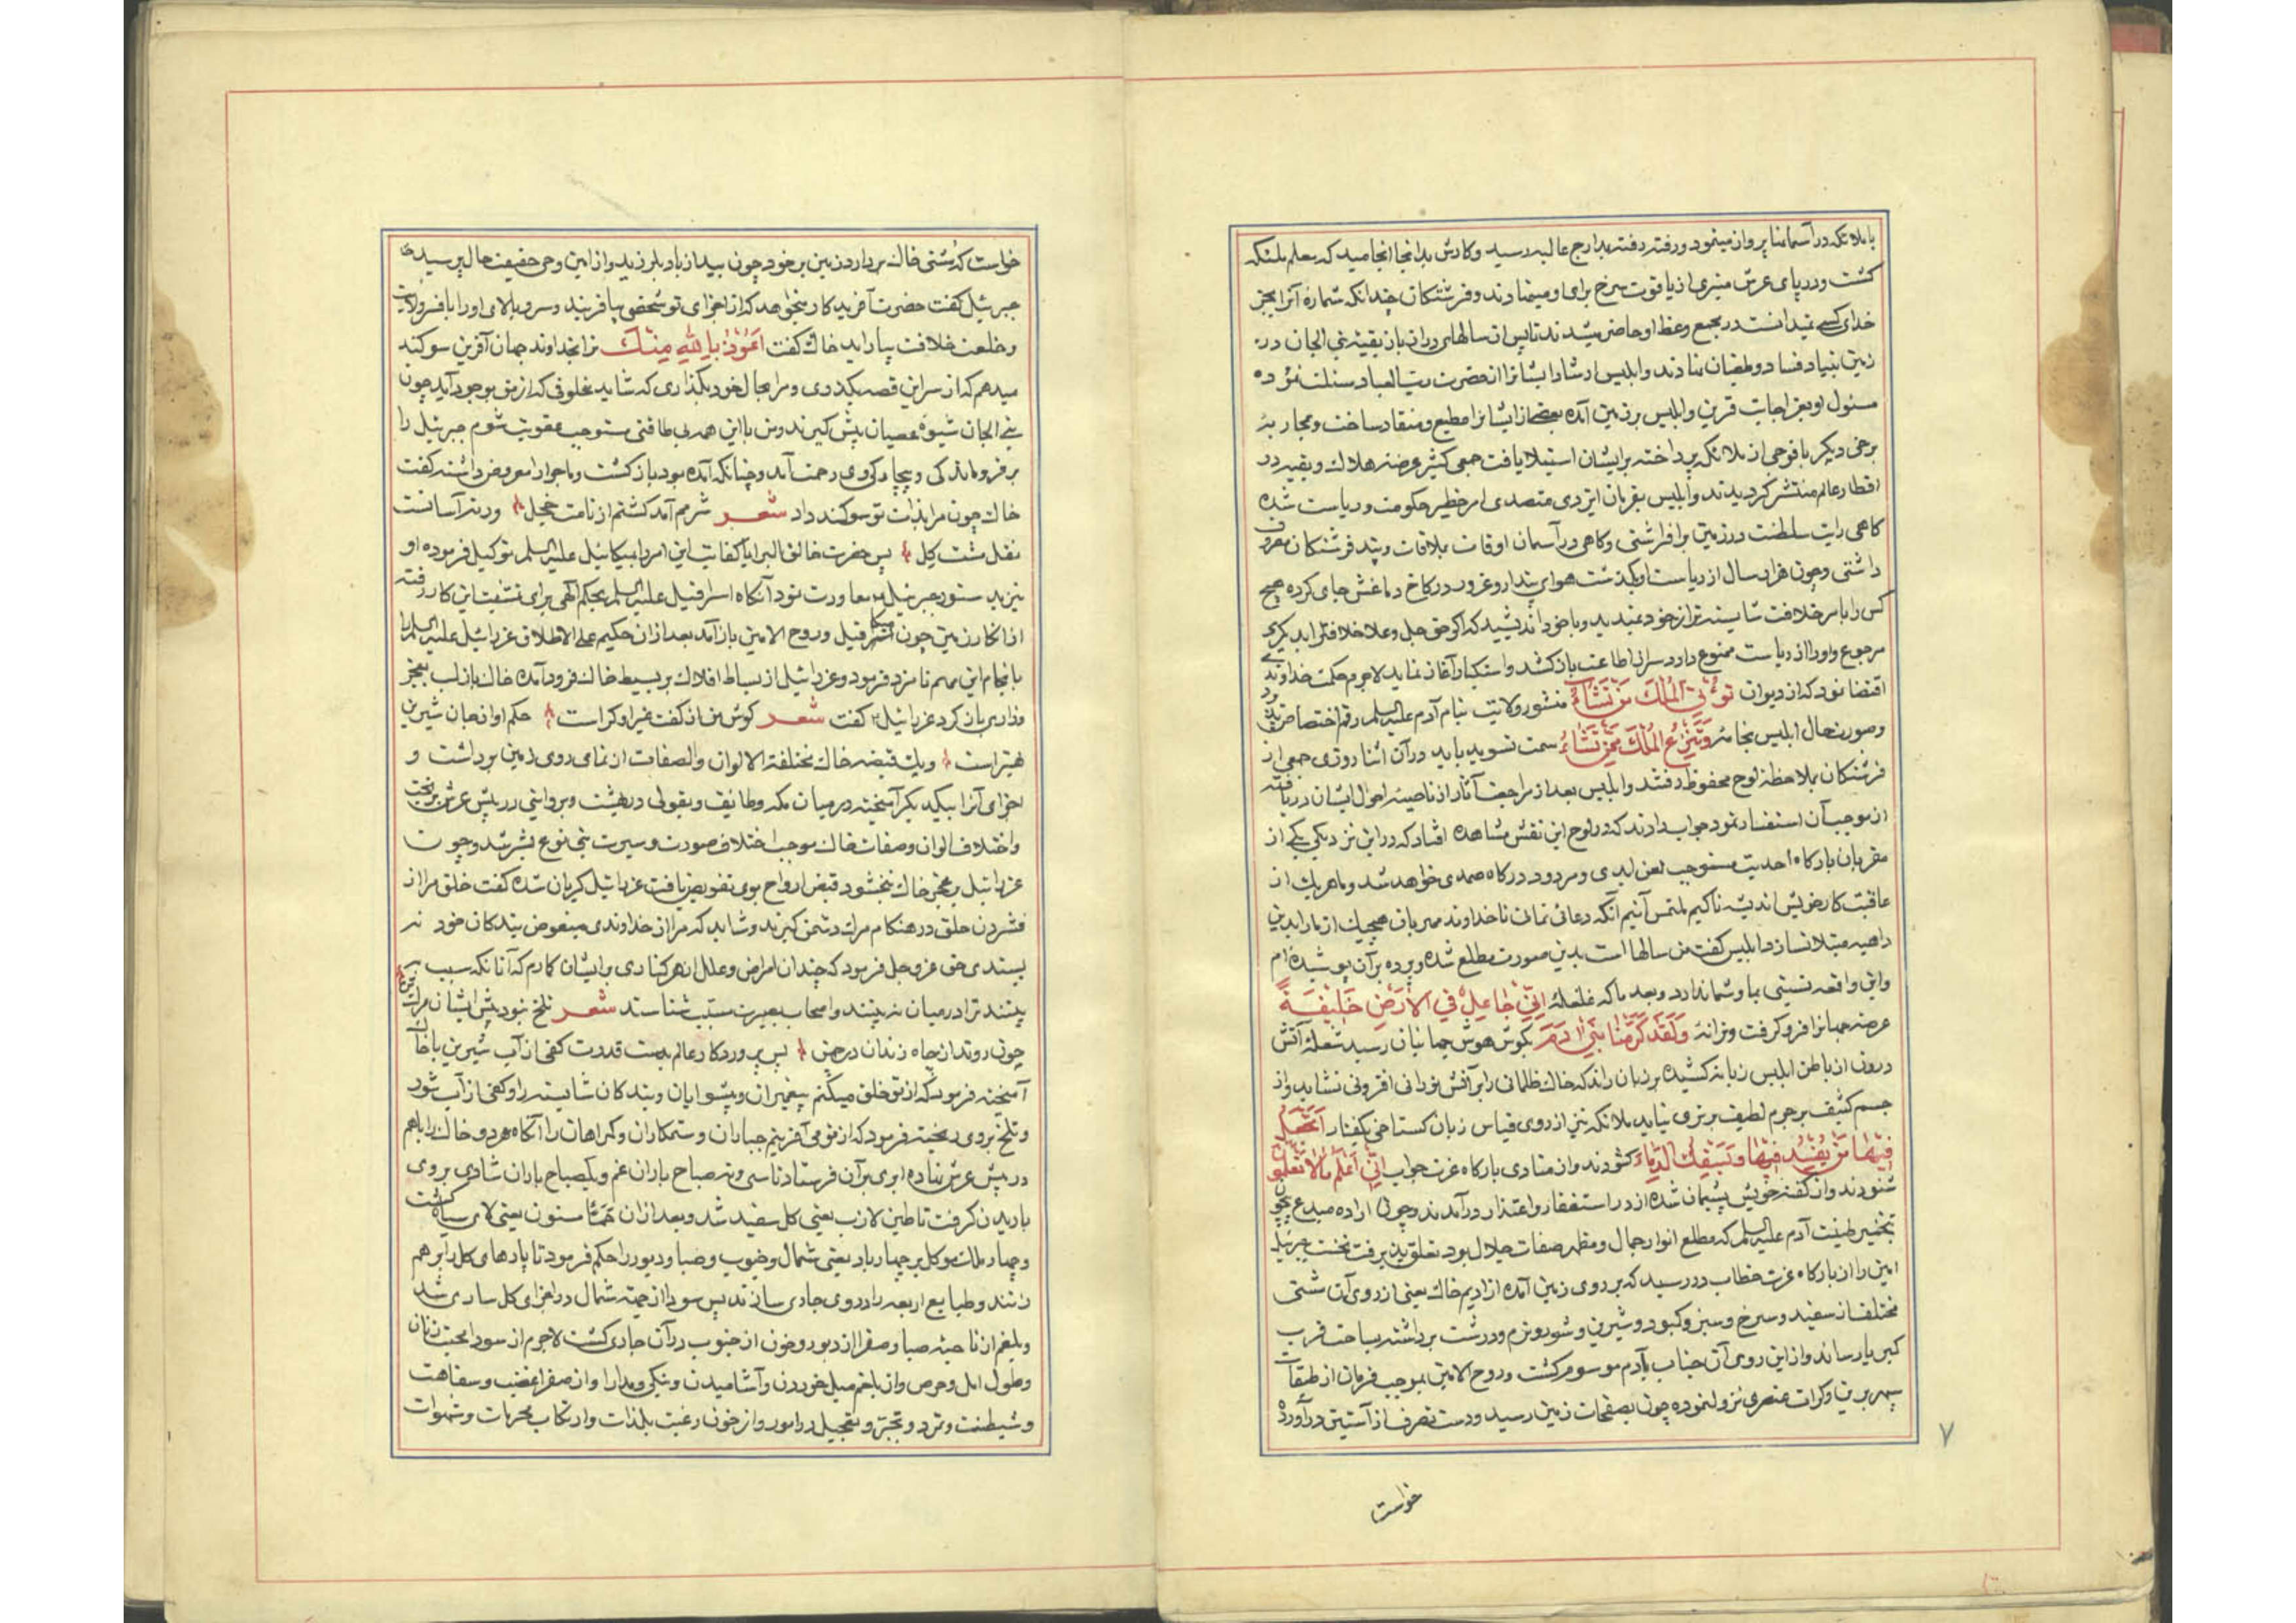 با ملائکه در آسمانها پرواز مینمود و رفته رفته بمدارج عالیه رسید و کارش بدانجا انجامید که معلم ملئکه
کشت و در پای عرش منبری از یاقوت سرخ برای او مینهادند و فرشتکان چندانکه شماره آنرا بجز
خدای کسی نمیدانست در مجمع وعظ او حاضر میشدند تا پس از سالهای دراز باز بقیه بنی الجان در
زمین بنیاد فساد و طغیان نهادند و ابلیس ارشاد ایشانرا از حضرت رب العباد مسئلت نموده
مسئول او بعز اجابت قرین و ابلیس بر زمین آمده بعضی از ایشانرا مطیع و منقاد ساخت و بمحاربه
برخی دیکر با فوجی از ملائکه پرداخته بر ایشان استیلا یافت جمعی کثیر عرضه هلاک و بقیه در
اقطار عالم منتشر کردیدند و ابلیس بفرمان ایزدی متصدی امر خطیر حکومت و ریاست شده
کاهی رایت سلطنت در زمین برافراشتی و کاهی در آسمان اوقات بملاقات و پند فرشتکان مصروف
داشتی و چون هزار سال از ریاست او بکذشت هوای پندار و غرور در کاخ دماغش جای کرده هیچ
کس را بامر خلافت شایسته تر از خود ندید و با خود اندیشید که اکر حق جل و علا خلافترا بدیکری
مرجوع و اورا از ریاست ممنوع دارد سر از اطاعت باز کشد و استکبار آغاز نماید لاجرم حکمت خداوندی
اقتضا نمود که از دیوان تُؤتِی المُلکَ مَن تَشَاءُ منشور ولایت بنام آدم علیه السلم رقم اختصاص پذیرد
و صورت حال ابلیس بخامه وَتَنزِعُ المُلکَ مِمَّن تَشَاءُ سمت تسوید یابد در آن اثنا روزی جمعی از
فرشتکان بملاحظه لوح محفوظ رفتند و ابلیس بعد از مراجعت آثار از ناصیه احوال ایشان دریافته
از موجب آن استفسار نمود جواب دادند که در لوح این نقش مشاهده افتاد که در این نزدیکی یکی از
مقربان بارکاه احدیت مستوجب لعن ابدی و مردود درکاه صمدی خواهد شد و ما هر یک از
عاقبت کار خویش اندیشه ناکیم ملتمس آنیم انکه دعائی نمائی تا خداوند مهربان هیچیک از ما را بدین
داهیه مبتلا نسازد ابلیس کفت من سالها است بدین صورت مطلع شده و پرده بر آن پوشیده ام
و این واقعه نسبتی بما و شما ندارد و بعد ما که غلغله اِنِّی جَاعِلٌ فِی الاَرضِ خَلِیفَةً
عرصه جهانرا فرو کرفت و ترانه وَلَقَد کَرَّمنَا بَنِی آدَمَ بکوش هوش جهانیان رسید شعله آتش
درون از باطن ابلیس زبانه کشیده بر زبان راند که خاک ظلمانی را بر آتش نورانی افزونی نشاید و از
جسم کثیف بر جرم لطیف برتری نیاید ملائکه نیز از روی قیاس زبان کستاخی بکفتار اَتَجعَلُ
فِیهَا مَن یُفسِدُ فِیهَا وَیَسفِکُ الدِّمَاءَ کشودند و از منادی بارکاه عزت جواب اِنِّی اَعلَمُ مَا لَا تَعلَمُونَ
شنودند و از کفته خویش پشیمان شده از در استغفار و اعتذار در آمدند و چون اراده مبدع بیچون
بتخمیر طینت آدم علیه السلم که مطلع انوار جمال و مظهر صفات جلال بود تعلق پذیرفت نخست جبرئیل
امین را از بارکاه عزت خطاب در رسید که بر روی زمین آمده از ادیم خاک یعنی از روی آن مشتی
مختلف از سفید و سرخ و سبز و کبود و شیرین و شور و نرم و درشت برداشته بساحت قرب
کبریا رساند و از این روی آن جناب بآدم موسوم کشت و روح الامین بموجب فرمان از طبقات
سپهر برین و کرات عنصری نزول نموده چون بصفحات زمین رسید و دست تصرف از آستین در آورده
۷
خواست
خواست که مشتی خاک بردارد زمین بر خود چون بید از باد بلرزید و از امین وحی حقیقت حال پرسید
جبرئیل کفت حضرت آفریدکار میخواهد که از اجزای تو شخصی بیافریند و سر و بالای او را بافسر ولایت
و خلعت خلافت بیاراید خاک کفت اَعُوذُ بِاللهِ مِنکَ ترا بخداوند جهان آفرین سوکند
میدهم که از سر این قصه بکذری و مرا بحال خود بکذاری که شاید مخلوقی که از من بوجود آید چون
بنی الجان شیوه عصیان پیش کیرند و من با این همه بی طاقتی مستوجب عقوبت شوم جبرئیل را
بر فروماندکی و بیچارکی وی رحمت آمد و چنانکه آمده بود باز کشت و ماجرا را معروض داشته کفت
خاک چون مرا بذات تو سوکند داد شعر شرمم آمد کشتم از نامت خجل ورنه آسانست
نقل مشت کل پس حضرت خالق البرایا کفایت این امر را بمیکائیل علیه السلم توکیل فرموده او
نیز بدستور جبرئیل معاودت نمود آنکاه اسرافیل علیه السلم بحکم الهی برای تمشیت این کار رفته
از انکار زمین چون میکائیل و روح الامین باز آمد بعد از آن حکیم علی الاطلاق عزرائیل علیه السلم را
بانجام این مهم نامزد فرمود و عزرائیل از بساط افلاک بر بسیط خاک فرود آمده خاک باز لب بعجز
و زاری باز کرد عزرائیل کفت شعر کوش من از کفت غیر او کر است حکم او از جان شیرین
بهتر است و یک قبضه خاک مختلفة الالوان والصفات از تمامی روی زمین برداشت و
اجزای آنرا بیکدیکر آمیخته در میان مکه و طائف و بقولی در بهشت و بروایتی در پیش عرش بریخت
و اختلاف الوان و صفات خاک موجب اختلاف صورت و سیرت بنی نوع بشر شد و چون
عزرائیل بر عجز خاک نبخشود قبض ارواح بوی تفویض یافت عزرائیل کریان شده کفت خلق مرا از
فشردن حلق در هنکام مرک دشمن کیرند و شاید که مرا از خداوندی مبغوض بندکان خود نه
پسندی حق عز و جل فرمود که چندان امراض و علل از هر کناری بر ایشان کارم که آنانکه سبب
بینند ترا در میان نه بینند و اصحاب بصیرت مسبب شناسند شعر تلخ نبود پیش ایشان مرک تن
چون روند از چاه زندان در چمن پس پروردکار عالم بدست قدرت کفی از آب شیرین با خاک
آمیخته فرمود که از تو خلق میکنم پیغمبران و پیشوایان و بندکان شایسته را و کفی از آب شور
و تلخ بر وی ریخته فرمود که از تو می آفرینم جباران و ستمکاران و کمراهان را آنکاه هر دو خاک را باهم
در پیش عرش نهاده ابری بر آن فرستاد تا سی و نه صباح باران غم و یکصباح باران شادی بر وی
باریدن کرفت تا طین لازب یعنی کل سفید شد و بعد از آن حَمَأ مسنون یعنی لای سیاه کشت
و چهار ملک موکل بر چهار باد یعنی شمال و جنوب و صبا و دبور را حکم فرمود تا پارهای کل را بر هم
زنند و طبایع اربعه را در وی جاری سازند پس سودا از جهة شمال در اجزای کل ساری شد
و بلغم از ناحیه صبا و صفرا از دبور و خون از جنوب در آن جاری کشت لاجرم از سودا محبت زنان
و طول امل و حرص و از بلغم میل خوردن و آشامیدن و نیکی و مدارا و از صفرا غضب و سفاهت
و شیطنت و تمرد و تجبر و تعجیل در امور و از خون رغبت بلذات و ارتکاب محرمات و شهوات